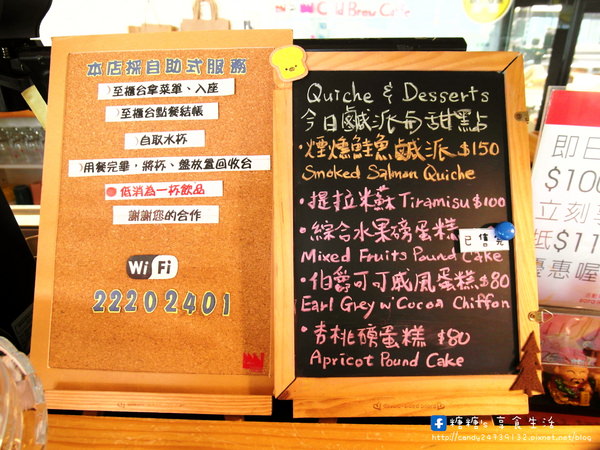 Cold Brew Coffee
本店採自助式服務
至櫃台拿菜單、入座
至櫃台點餐結帳
自取水杯
用餐完畢，將杯、盤放置回收台
低消為一杯飲品
謝謝您的合作
WiFi
22202401
Quiche & Desserts
今日鹹派與甜點
•煙燻鮭魚鹹派 $150
Smoked Salmon Quiche
•提拉米蘇 Tiramisu $100
•綜合水果磅蛋糕
已售完
Mixed Fruits Pound Cake
•伯爵可可戚風蛋糕 $80
Earl Grey w' Cocoa Chiffon
•杏桃磅蛋糕 $80
Apricot Pound Cake
即日
$100
立刻
抵$11
優惠喔
糖糖's 享食生活
http://candy24739132.pixnet.net/blog